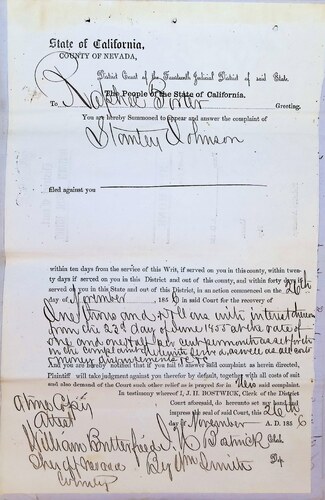 State of California,
COUNTY OF NEVADA,
District Court of the Fourteenth Judicial District of said State.
The People of the State of California.
To Greeting.
You are hereby Summoned to appear and answer the complaint of
Stanley Johnson
filed against you
within ten days from the service of this Writ, if served on you in this county, within twen-
ty days if served on you in this District and out of this county, and within forty days if
served on you in this State and out of this District, in an action commenced on the 26th
day of November 1856 in said Court for the recovery of
One thousand dollars with interest
from the 22d day of June 1855 at the rate of
one and one half per cent per month as set forth
in the complaint as well as all costs
And you are hereby notified that if you fail to answer said complaint as herein directed,
Plaintiff will take judgment against you therefor by default, together with all costs of suit
and also demand of the Court such other relief as is prayed for in said complaint.
In testimony whereof I, J. H. BOSTWICK, Clerk of the District
Court aforesaid, do hereunto set my hand and
impress the seal of said Court, this 26th
day of November A. D. 1856
A true Copy
Attest
William Butterfield J. H. Bostwick Clerk
Sher of Nevada By Wm Smith Dty
County